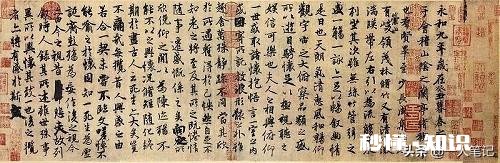 永和九年歲在癸丑暮春之初會
于會稽山陰之蘭亭脩稧事
也群賢畢至少長咸集此地
有崇山峻領茂林脩竹又有清流激
湍暎帶左右引以為流觴曲水
列坐其次雖無絲竹管弦之
盛一觴一詠亦足以暢敘幽情
是日也天朗氣清惠風和暢仰
觀宇宙之大俯察品類之盛
所以遊目騁懷足以極視聽之
娛信可樂也夫人之相與俯仰
一世或取諸懷抱悟言一室之內
或因寄所託放浪形骸之外雖
趣舍萬殊靜躁不同當其欣
於所遇蹔得於己怏然自足不
知老之將至及其所之既惓情
隨事遷感慨係之矣向之所
欣俛仰之閒以為陳迹猶不
能不以之興懷況脩短隨化終
期於盡古人云死生亦大矣豈
不痛哉每攬昔人興感之由
若合一契未嘗不臨文嗟悼不
能喻之於懷固知一死生為虛
誕齊彭殤為妄作後之視今
亦由今之視昔悲夫故列
敘時人錄其所述雖世殊事
異所以興懷其致一也後之攬
者亦將有感於斯
秒懂 知识